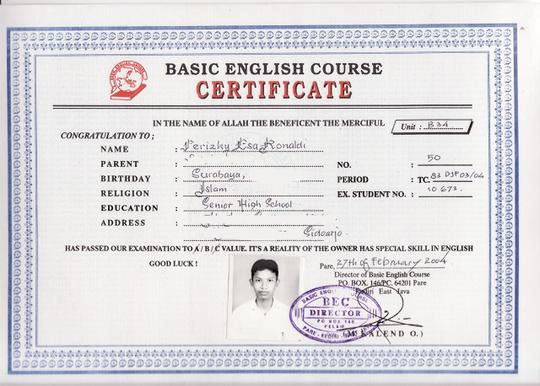 BASIC ENGLISH COURSE
CERTIFICATE
IN THE NAME OF ALLAH THE BENEFICENT THE MERCIFUL
Unit : B34
CONGRATULATION TO ;
NAME : Ferizky Esa Ronaldi
PARENT :
NO. : 50
BIRTHDAY : Surabaya,
PERIOD : TC.
RELIGION : Islam
EX. STUDENT NO. : 10 673.
EDUCATION : Senior High School
ADDRESS :
Sidoarjo
HAS PASSED OUR EXAMINATION TO A / B / C VALUE. IT'S A REALITY OF THE OWNER HAS SPECIAL SKILL IN ENGLISH
GOOD LUCK !
Pare, 27th of February 2004
Director of Basic English Course
PO. BOX. 146/PC. 64201 Pare
Kediri East Java
BASIC ENGLISH
BEC
DIRECTOR
PO BOX 146
PELEM
PARE - KEDIRI
KALEND O.)